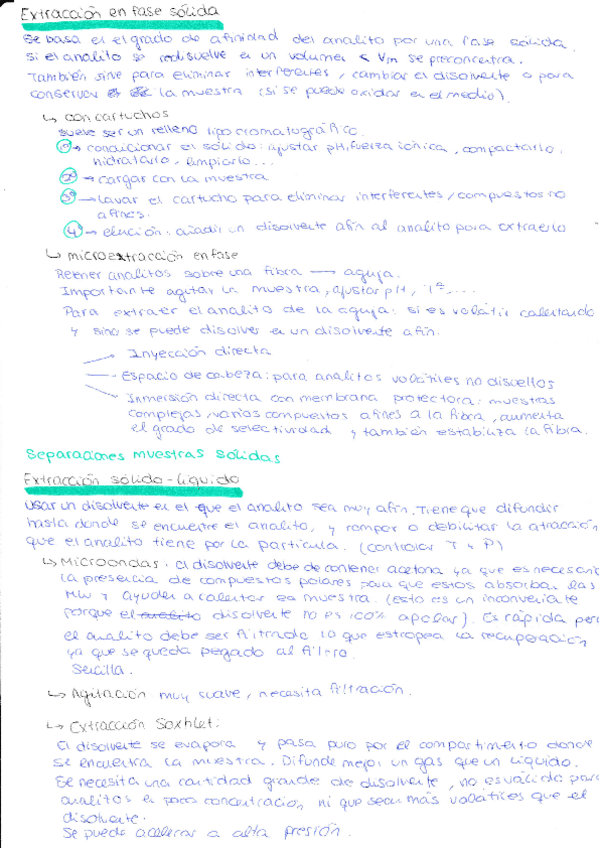 Extracción en fase sólida
Se basa en el grado de afinidad del analito por una fase sólida.
Si el analito se redisuelve en un volumen < Vm se preconcentra.
También sirve para eliminar interferentes, cambiar el disolvente o para
conservar la muestra (si se puede oxidar en el medio).
↳ con cartuchos
suele ser un relleno tipo cromatográfico.
1º → condicionar el sólido: ajustar pH, fuerza iónica, compactarlo,
hidratarlo, limpiarlo...
2º → cargar con la muestra
3º → lavar el cartucho para eliminar interferentes / compuestos no
afines.
4º → elución: añadir un disolvente afín al analito para extraerlo
↳ microextracción en fase
Retener analitos sobre una fibra → aguja.
Importante agitar la muestra, ajustar pH, Tª,...
Para extraer el analito de la aguja: si es volátil calentando
y sino se puede disolver en un disolvente afín.
Inyección directa
Espacio de cabeza: para analitos volátiles no disueltos
Inmersión directa con membrana protectora: muestras
complejas, varios compuestos afines a la fibra, aumenta
el grado de selectividad y también estabiliza la fibra.
Separaciones muestras sólidas
Extracción sólido-líquido
Usar un disolvente en el que el analito sea muy afín. Tiene que difundir
hasta donde se encuentre el analito, y romper o debilitar la atracción
que el analito tiene por la partícula. (controlar T y P)
↳ Microondas: el disolvente debe de contener acetona ya que es necesaria
la presencia de compuestos polares para que estos absorban las
MW y ayuden a calentar la muestra. (esto es un inconveniente
porque el disolvente no es 100% apolar). Es rápida pero
el analito debe ser filtrado lo que estropea la recuperación
ya que se queda pegado al filtro.
Sencilla.
↳ Agitación muy suave, necesita filtración.
↳ Extracción Soxhlet:
El disolvente se evapora y pasa puro por el compartimento donde
se encuentra la muestra. Difunde mejor un gas que un líquido.
Se necesita una cantidad grande de disolvente, no es válido para
analitos en poca concentración, ni que sean más volátiles que el
disolvente.
Se puede acelerar a alta presión.